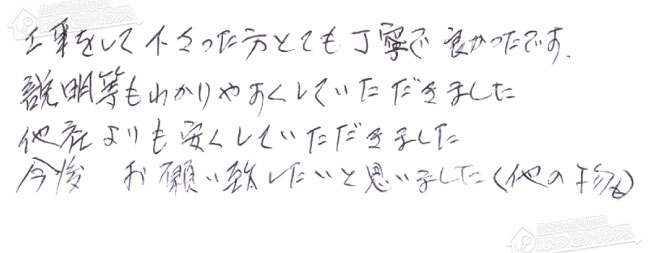 工事をして下さった方とても丁寧で良かったです.
説明等もわかりやすくしていただきました
他社よりも安くしていただきました
今後 お願い致したいと思いました(他の も)